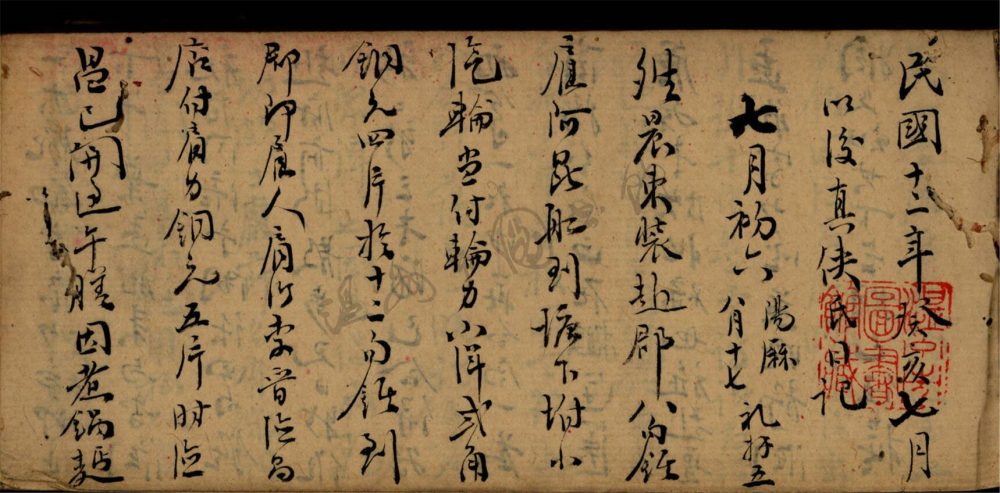 民國十二年癸亥七月
以後真俠氏日記
七月初六 陽厤八月十七 礼拜五
晨束裝赴郡八句鐘
雇河昆船到塘下坿小
汽輪当付輪力小洋弍角
銅元四片於十二句鐘到
郡即雇人肩行李晋陸局
店付肩力銅元五片時陸
局已開過午膳因煮鍋麺